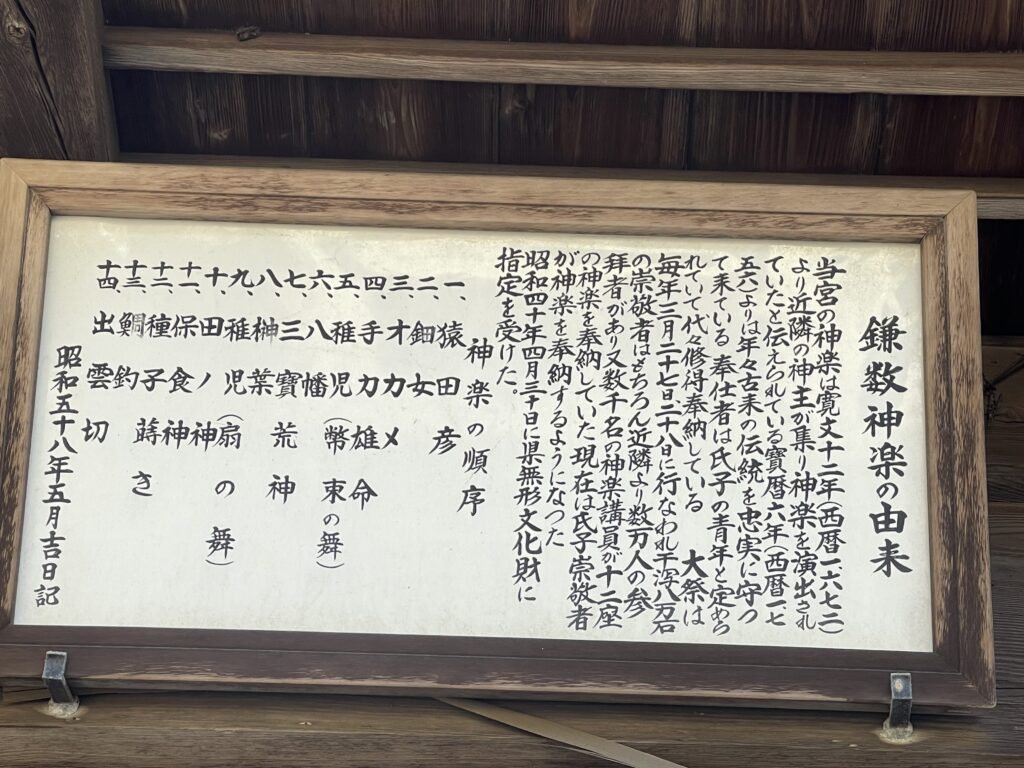 鎌数神楽の由来
当宮の神楽は寛文十二年(西暦一六七二)
より近隣の神主が集り神楽を演出され
ていたと伝えられている寳暦六年(西暦一七
五六)よりは年々古来の伝統を忠実に守つ
て来ている 奉仕者は氏子の青年と定めら
れていて代々修得奉納している 大祭は
毎年三月二十七日二十八日に行なわれ干潟八万石
の崇敬者はもちろん近隣より数万人の参
拜者があり又数千名の神楽講員が十二座
の神楽を奉納していた現在は氏子崇敬者
が神楽を奉納するようになつた
昭和四十年四月三十日に県無形文化財に
指定を受けた。
神楽の順序
一、猿田彦
二、鈿女
三、オカメ
四、手力雄命
五、稚児(幣束の舞)
六、八幡
七、三寳荒神
八、榊葉
九、稚児(扇の舞)
十、田ノ神
十一、保食神
十二、種子蒔き
十三、鯛釣
十四、出雲切
昭和五十八年五月吉日記